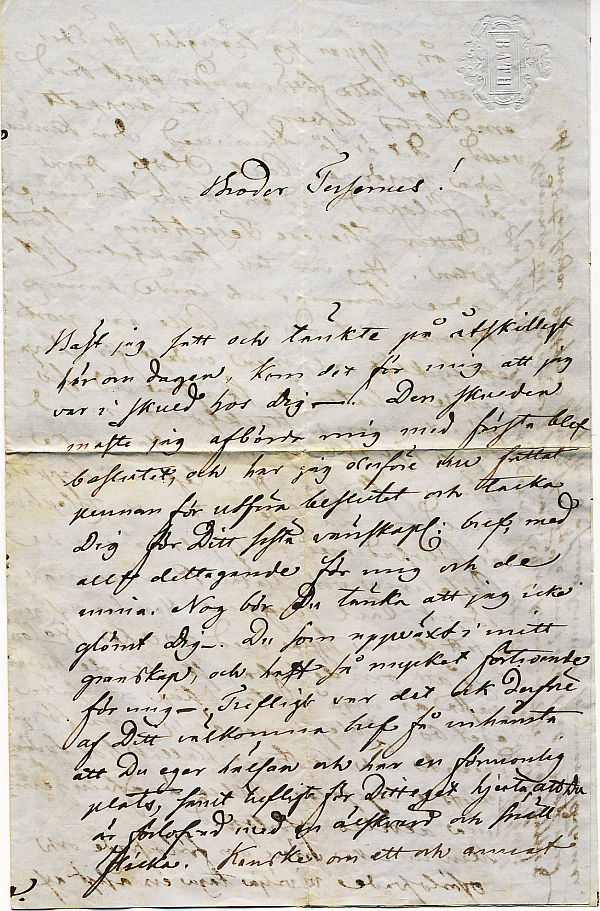 BATH
Broder Tersernes!
Bäst jag satt och tänkte på åtskilligt
här om dagen, kom det för mig att jag
var i skuld hos Dig —. Den skulden
måste jag afbörda mig med första blef
beslutet, och har jag derföre nu fattat
pennan för utföra beslutet och tacka
Dig för Ditt sista vänskapl; bref, med
allt deltagande för mig och de
mina. Nog bör Du tänka att jag icke
glömt Dig —. Du som uppväxt i mitt
granskap, och haft så mycket förtroende
för mig —. Trefligt var det ock derföre
af Ditt välkomna bref få inhämta
att Du eger hälsan och har en förmonlig
plats, samt trefligt för Ditt eget hjerta, att Du
är förlofvad med en älskvärd och snäll
flicka. Kanske om ett och annat